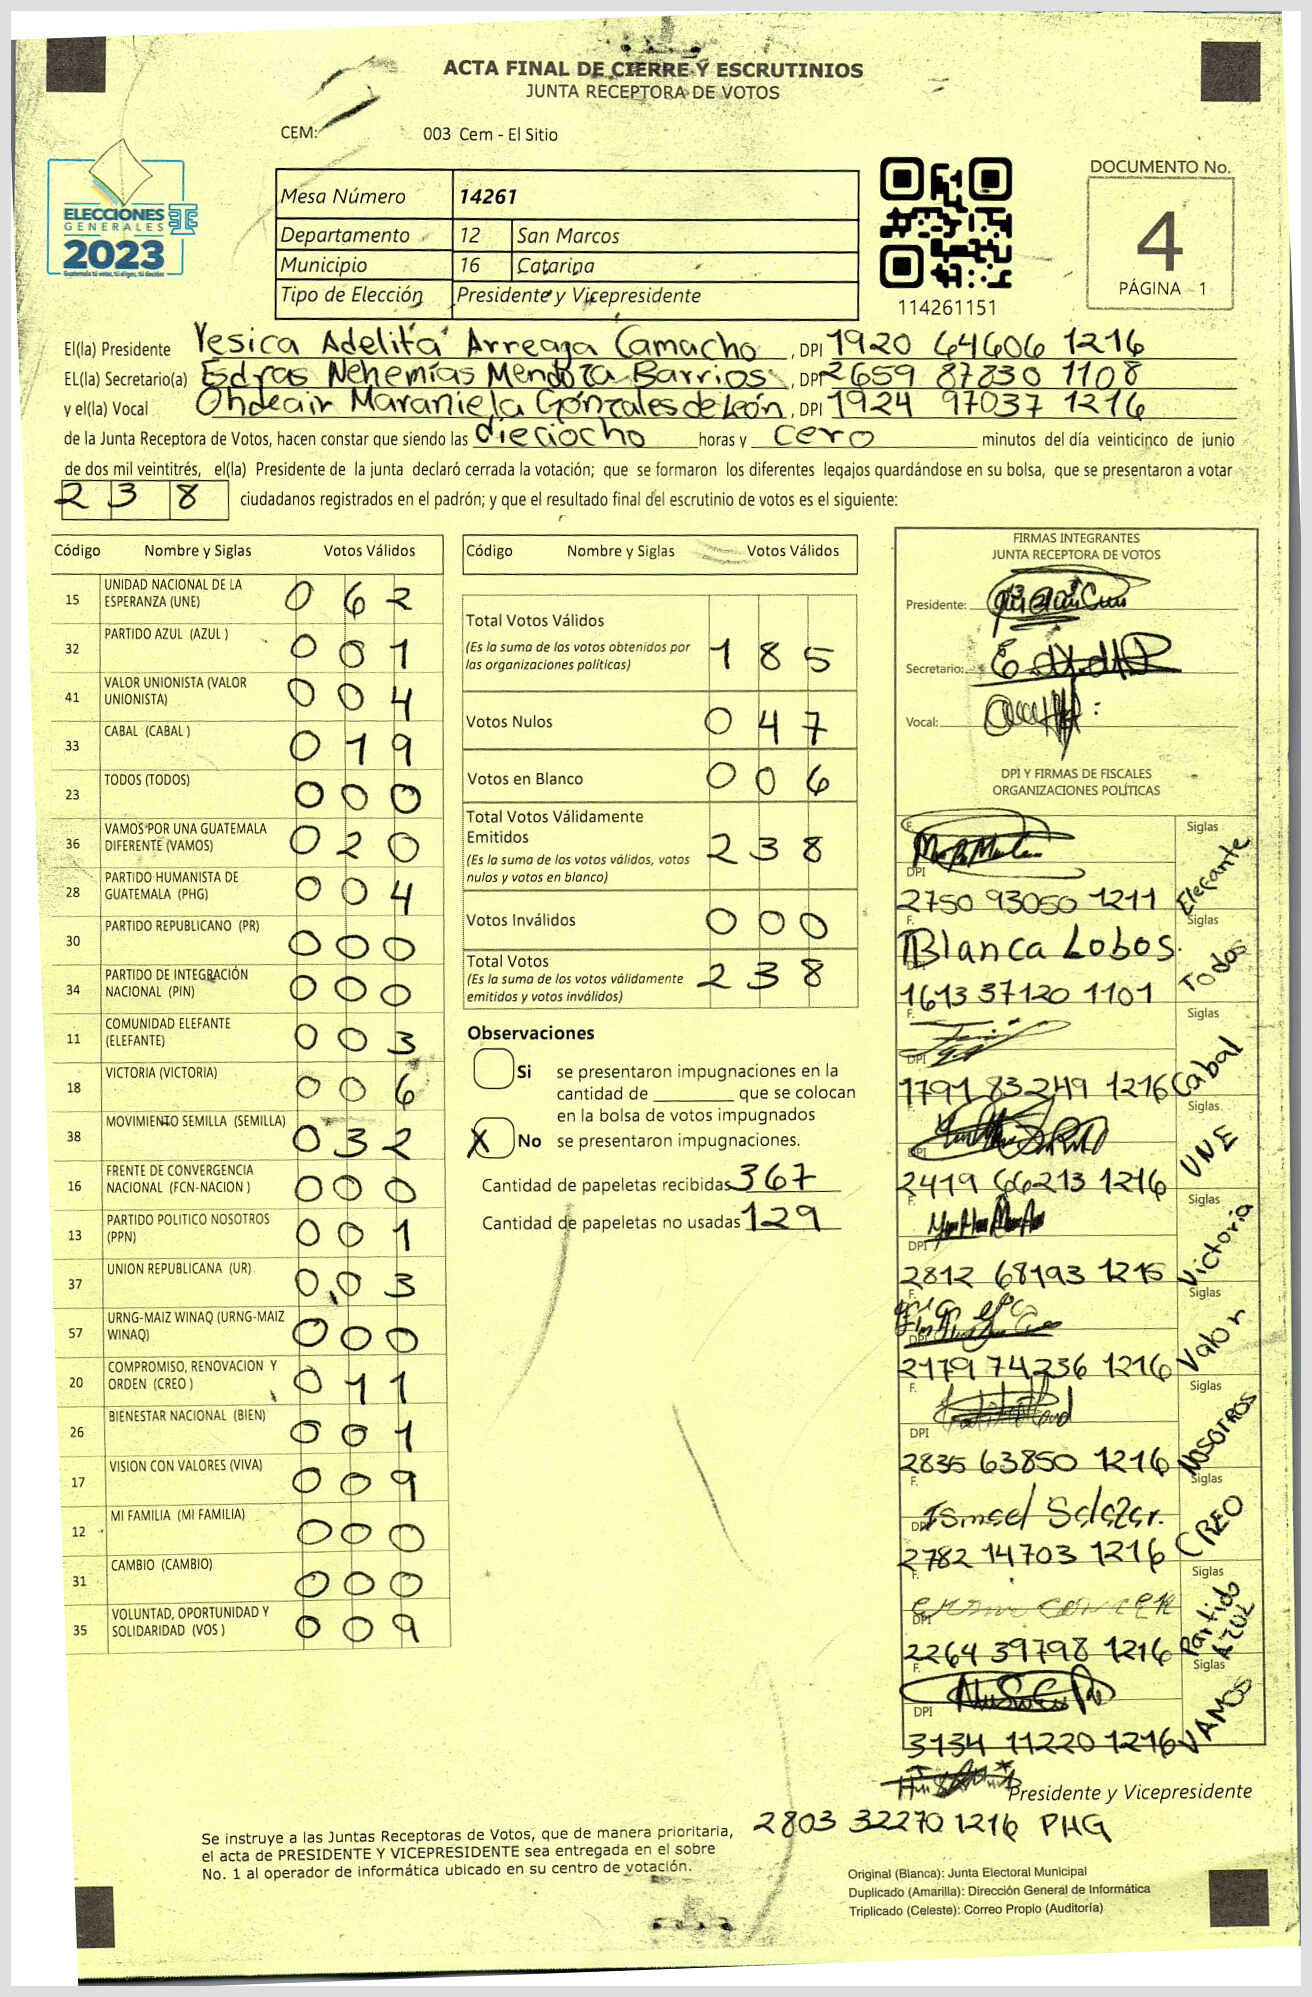 ACTA FINAL DE CIERRE Y ESCRUTINIOS
JUNTA RECEPTORA DE VOTOS
CEM: 003 Cem - El Sitio
ELECCIONES
GENERALES
2023
Guatemala tú votas, tú eliges, tú decides
Mesa Número 14261
Departamento 12 San Marcos
Municipio 16 Catarina
Tipo de Elección Presidente y Vicepresidente
114261151
DOCUMENTO No.
4
PÁGINA 1
El(la) Presidente Yesica Adelita Arreaga Camacho, DPI 1920 64606 1216
EL(la) Secretario(a) Esdras Nehemías Mendoza Barrios, DPI 2659 87830 1108
y el(la) Vocal Ohdeair Maraniela Gónzales de León, DPI 1924 97037 1216
de la Junta Receptora de Votos, hacen constar que siendo las dieciocho horas y cero minutos del día veinticinco de junio
de dos mil veintitrés, el(la) Presidente de la junta declaró cerrada la votación; que se formaron los diferentes legajos guardándose en su bolsa, que se presentaron a votar
238 ciudadanos registrados en el padrón; y que el resultado final del escrutinio de votos es el siguiente:
Código Nombre y Siglas Votos Válidos
15 UNIDAD NACIONAL DE LA ESPERANZA (UNE) 062
32 PARTIDO AZUL (AZUL ) 001
41 VALOR UNIONISTA (VALOR UNIONISTA) 004
33 CABAL (CABAL ) 019
23 TODOS (TODOS) 000
36 VAMOS POR UNA GUATEMALA DIFERENTE (VAMOS) 020
28 PARTIDO HUMANISTA DE GUATEMALA (PHG) 004
30 PARTIDO REPUBLICANO (PR) 000
34 PARTIDO DE INTEGRACIÓN NACIONAL (PIN) 000
11 COMUNIDAD ELEFANTE (ELEFANTE) 003
18 VICTORIA (VICTORIA) 006
38 MOVIMIENTO SEMILLA (SEMILLA) 032
16 FRENTE DE CONVERGENCIA NACIONAL (FCN-NACION ) 000
13 PARTIDO POLITICO NOSOTROS (PPN) 001
37 UNION REPUBLICANA (UR) 003
57 URNG-MAIZ WINAQ (URNG-MAIZ WINAQ) 000
20 COMPROMISO, RENOVACION Y ORDEN (CREO ) 011
26 BIENESTAR NACIONAL (BIEN) 001
17 VISION CON VALORES (VIVA) 009
12 MI FAMILIA (MI FAMILIA) 000
31 CAMBIO (CAMBIO) 000
35 VOLUNTAD, OPORTUNIDAD Y SOLIDARIDAD (VOS ) 009
Código Nombre y Siglas Votos Válidos
Total Votos Válidos 185
(Es la suma de los votos obtenidos por
las organizaciones políticas)
Votos Nulos 047
Votos en Blanco 006
Total Votos Válidamente
Emitidos 238
(Es la suma de los votos válidos, votos
nulos y votos en blanco)
Votos Inválidos 000
Total Votos 238
(Es la suma de los votos válidamente
emitidos y votos inválidos)
Observaciones
Si se presentaron impugnaciones en la
cantidad de ________ que se colocan
en la bolsa de votos impugnados
X No se presentaron impugnaciones.
Cantidad de papeletas recibidas 367
Cantidad de papeletas no usadas 129
FIRMAS INTEGRANTES
JUNTA RECEPTORA DE VOTOS
Presidente:
Secretario:
Vocal:
DPI Y FIRMAS DE FISCALES
ORGANIZACIONES POLÍTICAS
F. Siglas
DPI
2750 93050 1211 Elefante
F. Siglas
Blanca Lobos.
1613 37120 1101 Todos
F. Siglas
DPI
1791 83249 1216 Cabal
Siglas
DPI
2419 66213 1216 UNE
F. Siglas
DPI
2812 68193 1215 Victoria
F. Siglas
DPI
2179 74236 1216 Valor
F. Siglas
DPI
2835 63850 1216 NOSOTROS
F. Siglas
DPI Ismael Salazar.
2782 14703 1216 CREO
F. Siglas
DPI
2264 39798 1216 Partido AZUL
F. Siglas
DPI
3134 11220 1216 VAMOS
Presidente y Vicepresidente
2803 32270 1216 PHG
Se instruye a las Juntas Receptoras de Votos, que de manera prioritaria,
el acta de PRESIDENTE Y VICEPRESIDENTE sea entregada en el sobre
No. 1 al operador de informática ubicado en su centro de votación.
Original (Blanca): Junta Electoral Municipal
Duplicado (Amarilla): Dirección General de Informática
Triplicado (Celeste): Correo Propio (Auditoría)